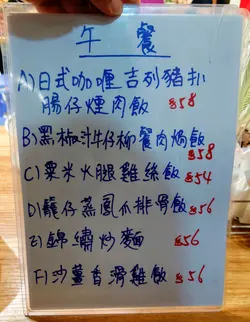 午餐
A)日式咖喱吉列豬扒
腸仔煙肉飯 $58
B)黑椒汁牛仔柳餐肉焗飯
$58
C)粟米火腿雞絲飯 $54
D)龍仔蒸鳳爪排骨飯 $56
E)錦繡炒麵 $56
F)沙薑香滑雞飯 $56